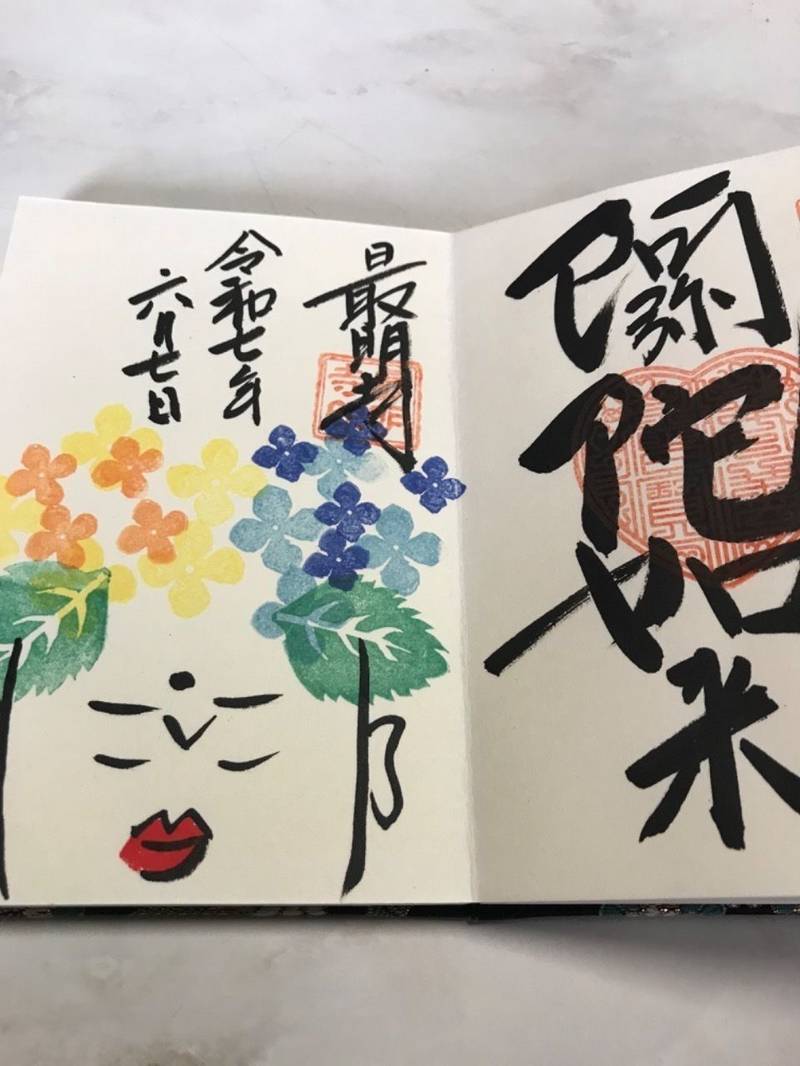 阿弥陀如来
最明寺
令和七年
六月七日